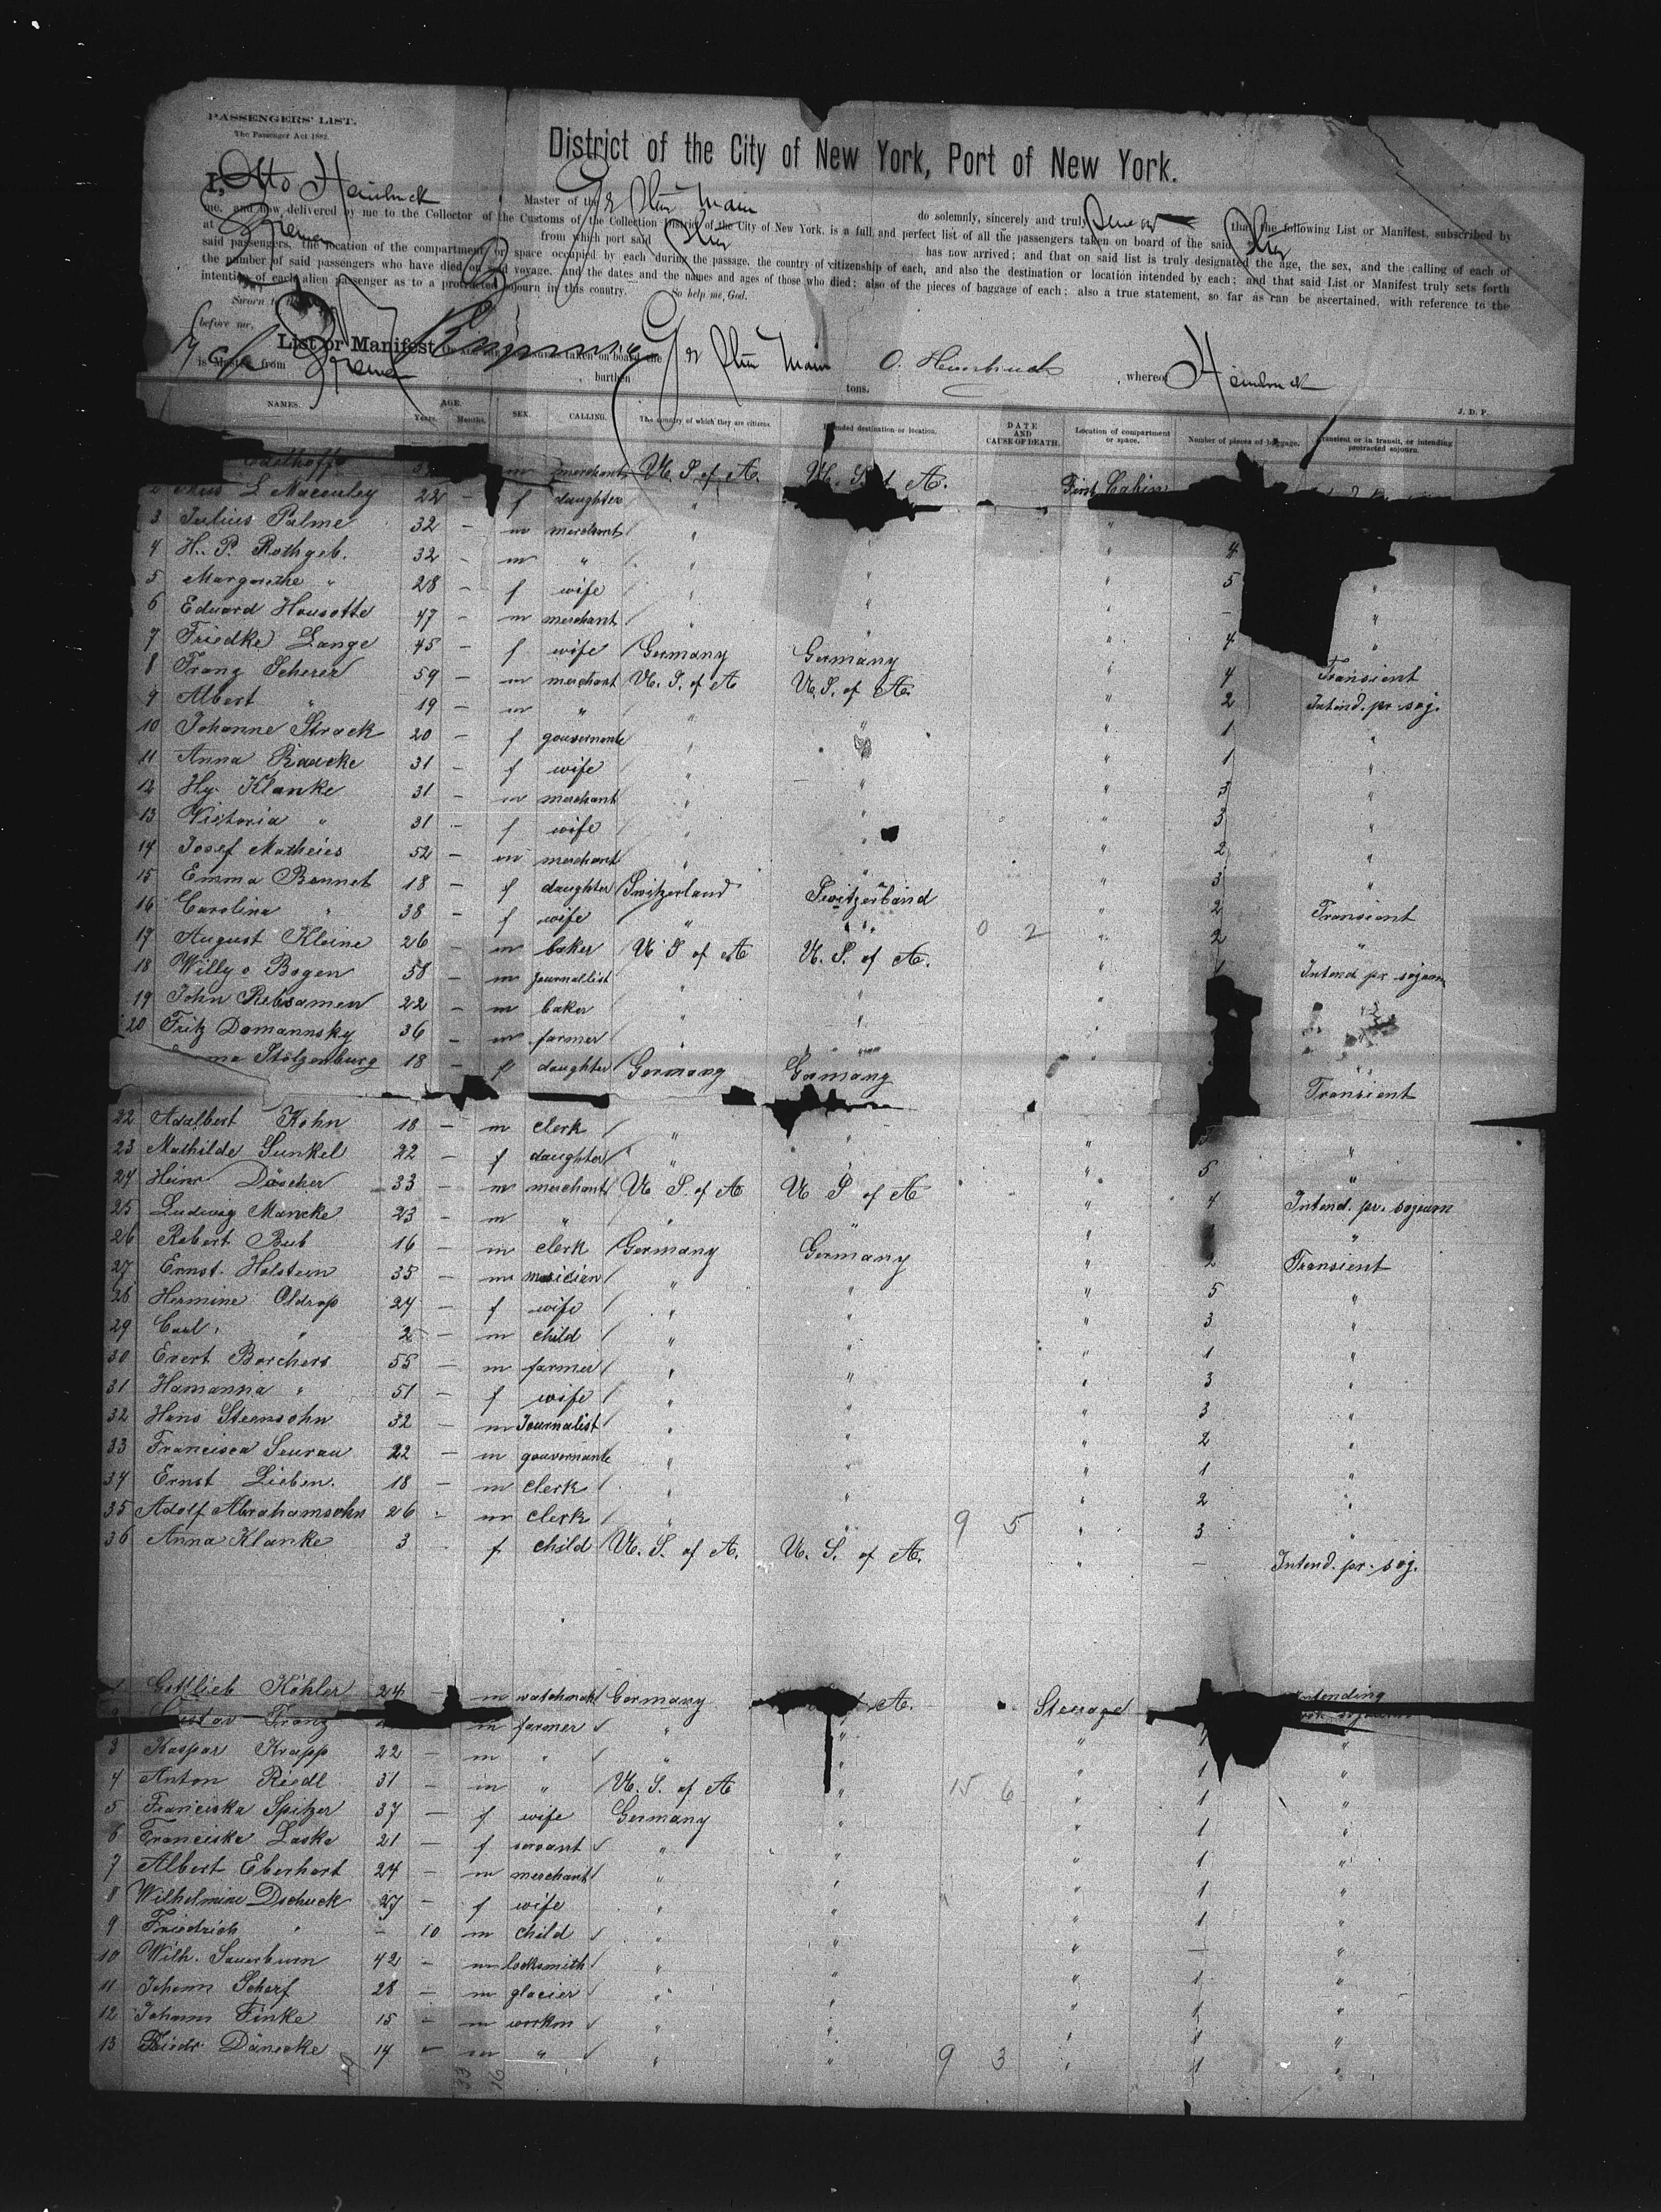 PASSENGERS' LIST.
The Passenger Act 1882.
District of the City of New York, Port of New York.
I, Otto Heimbruch Master of the Ger Str Main do solemnly, sincerely and truly swear that the following List or Manifest, subscribed by
me, and now delivered by me to the Collector of the Customs of the Collection District of the City of New York, is a full and perfect list of all the passengers taken on board of the said Str
at Bremen from which port said Str has now arrived; and that on said list is truly designated the age, the sex, and the calling of each of
said passengers, the location of the compartment or space occupied by each during the passage, the country of citizenship of each, and also the destination or location intended by each; and that said List or Manifest truly sets forth
the number of said passengers who have died on said voyage, and the dates and the names and ages of those who died; also of the pieces of baggage of each; also a true statement, so far as can be ascertained, with reference to the
intention of each alien passenger as to a protracted sojourn in this country. So help me, God.
Sworn to
before me.
O. Heimbruch
List or Manifest taken on board the Ger Str Main whereof Heimbruch
is Master, from Bremen , burthen tons.
J. D. P.
NAMES. AGE. Years. Months. SEX. CALLING. The country of which they are citizens. Intended destination or location. DATE AND CAUSE OF DEATH. Location of compartment or space. Number of pieces of baggage. Transient or in transit, or intending protracted sojourn.
m merchant U. S. of A. U. S. A. First Cabin
2 Miss L Macauley 22 - f daughter "
3 Julius Palme 32 - m merchant " "
4 H. P. Rothgeb. 32 - m " " " " 4
5 Margarethe " 28 - f wife " " " 5 "
6 Eduard Housotte 47 - m merchant " " " - "
7 Friedke Lange 45 - f wife Germany Germany " 4 "
8 Franz Scherer 59 - m merchant U. S. of A U. S. of A. " 4 Transient
9 Albert " 19 - m " " " 2 Intend. pr. soj.
10 Johanne Strack 20 - f gouvernante " " " 1 "
11 Anna Baacke 31 - f wife " " " 1 "
12 Hy. Klanke 31 - m merchant " " " 3 "
13 Victoria " 31 - f wife " " 3 "
14 Josef Matheis 52 - m merchant " " " 2 "
15 Emma Bonnet 18 - f daughter Switzerland Switzerland " 3 "
16 Carolina " 38 - f wife " " 0 2 " 2 Transient
17 August Kleine 26 - m baker U S of A U. S. of A. " 2 "
18 Willy o. Bogen 58 - m journallist " " " 1 Intend pr sojourn
19 John Rebsamen 22 - m baker " " "
20 Fritz Domannsky 36 - m farmer " " "
Stolzenburg 18 - f daughter Germany Germany " Transient
22 Adalbert Kohn 18 - m clerk " " "
23 Mathilde Gunkel 22 - f daughter " " " 5 "
24 Heinr Döscher 33 - m merchant U S. of A U S of A " 4 Intend. pr. sojourn
25 Ludwig Mancke 23 - m " " " " "
26 Robert Bub 16 - m clerk Germany Germany " 2 Transient
27 Ernst Holstein 35 - m musician " " " 5 "
28 Hermine Oldrop 24 - f wife " " " 3 "
29 Carl " 2 - m child " " " 1 "
30 Evert Borchers 55 - m farmer " " " 3 "
31 Hamanna " 51 - f wife " " " 3 "
32 Hans Steensohn 32 - m Journalist " " " 2 "
33 Francisca Seurau 22 - m gouvernante " " " 1 "
34 Ernst Lieben. 18 - m clerk " " " 2 "
35 Adolf Abrahamsohn 26 - m clerk " " 9 5 " 3 "
36 Anna Klanke 3 - f child U. S. of A. U. S. of A. " - Intend. pr. soj.
1 Gottlieb Köhler 24 - m watchmak Germany A. Steerage Intending
Gustav Franz m farmer " " " 1 "
3 Kaspar Krapp 22 - m " " " " 1 "
4 Anton Riedl 31 - m " U. S. of A " 15 6 " 1 "
5 Franciska Spitzer 37 - f wife Germany " " 1 "
6 Franciska Laska 21 - f servant " " " 1 "
7 Albert Eberhart 24 - m merchant " " " 1 "
8 Wilhelmine Dschuck 27 - f wife " " " 1 "
9 Friedrich " - 10 m child " " " - "
10 Wilh. Sauerburn 42 - m locksmith " " " 1 "
11 Johann Scharf 28 - m glacier " " " 1 "
12 Johann Finke 15 - m workm " " " 1 "
13 Friedr. Dänecke 14 - m " " " 9 3 " 1 "
33
16